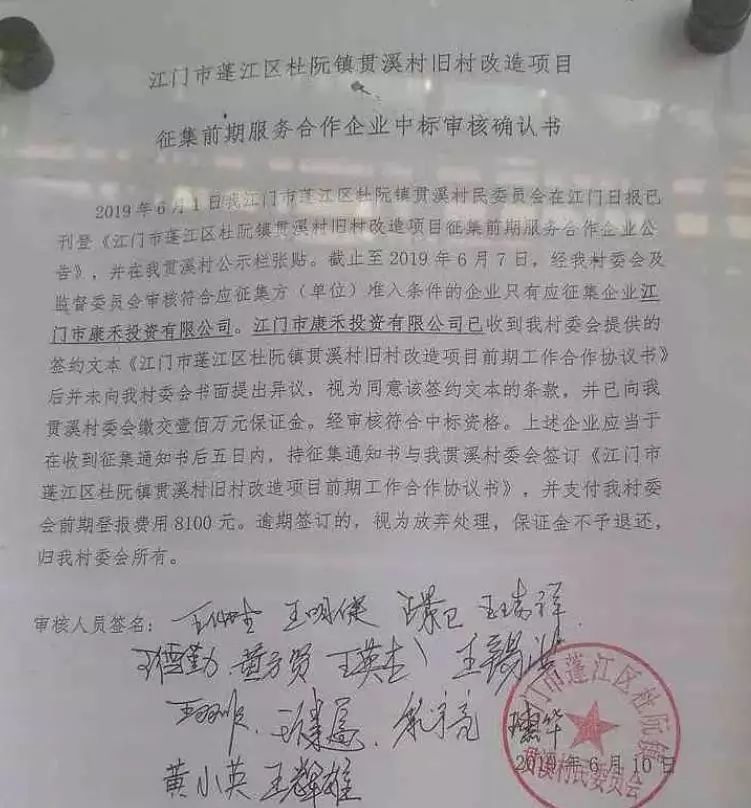 江门市蓬江区杜阮镇贯溪村旧村改造项目
征集前期服务合作企业中标审核确认书
2019年6月1日我江门市蓬江区杜阮镇贯溪村民委员会在江门日报已
刊登《江门市蓬江区杜阮镇贯溪村旧村改造项目征集前期服务合作企业公
告》，并在我贯溪村公示栏张贴。截止至2019年6月7日，经我村委会及
监督委员会审核符合应征集方（单位）准入条件的企业只有应征集企业江
门市康禾投资有限公司。江门市康禾投资有限公司已收到我村委会提供的
签约文本《江门市蓬江区杜阮镇贯溪村旧村改造项目前期工作合作协议书》
后并未向我村委会书面提出异议，视为同意该签约文本的条款，并已向我
贯溪村委会缴交壹佰万元保证金。经审核符合中标资格。上述企业应当于
在收到征集通知书后五日内，持征集通知书与我贯溪村委会签订《江门市
蓬江区杜阮镇贯溪村旧村改造项目前期工作合作协议书》，并支付我村委
会前期登报费用8100元。逾期签订的，视为放弃处理，保证金不予退还，
归我村委会所有。
审核人员签名： 王明健 王瑞祥
黄方贤 王英杰
江门市蓬江区杜阮镇
贯溪村民委员会
2019年6月10日
黄小英 王辉雄